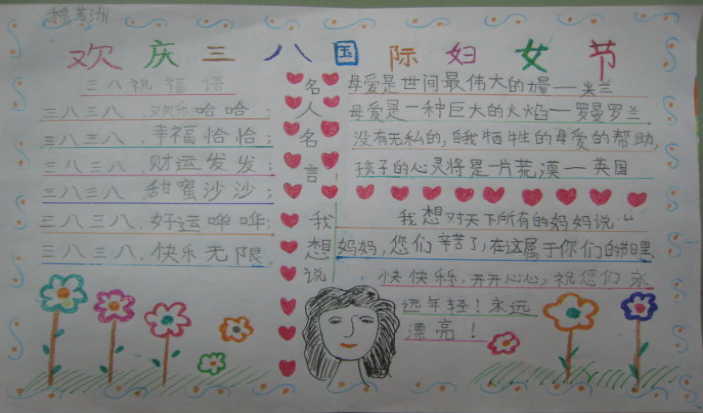 欢庆三八国际妇女节
三八祝福语
三八三八,欢乐哈哈;
三八三八,幸福恰恰;
三八三八,财运发发;
三八三八,甜蜜沙沙;
三八三八,好运哗哗;
三八三八,快乐无限
名人名言
母爱是世间最伟大的力量—米兰
母爱是一种巨大的火焰—罗曼罗兰
没有无私的,自我牺牲的母爱的帮助,
孩子的心灵将是一片荒漠—英国
我想说
我想对天下所有的妈妈说“
妈妈,您们辛苦了,在这属于你们的节日里
快快乐乐,开开心心,祝您们永
远年轻!永远
漂亮!